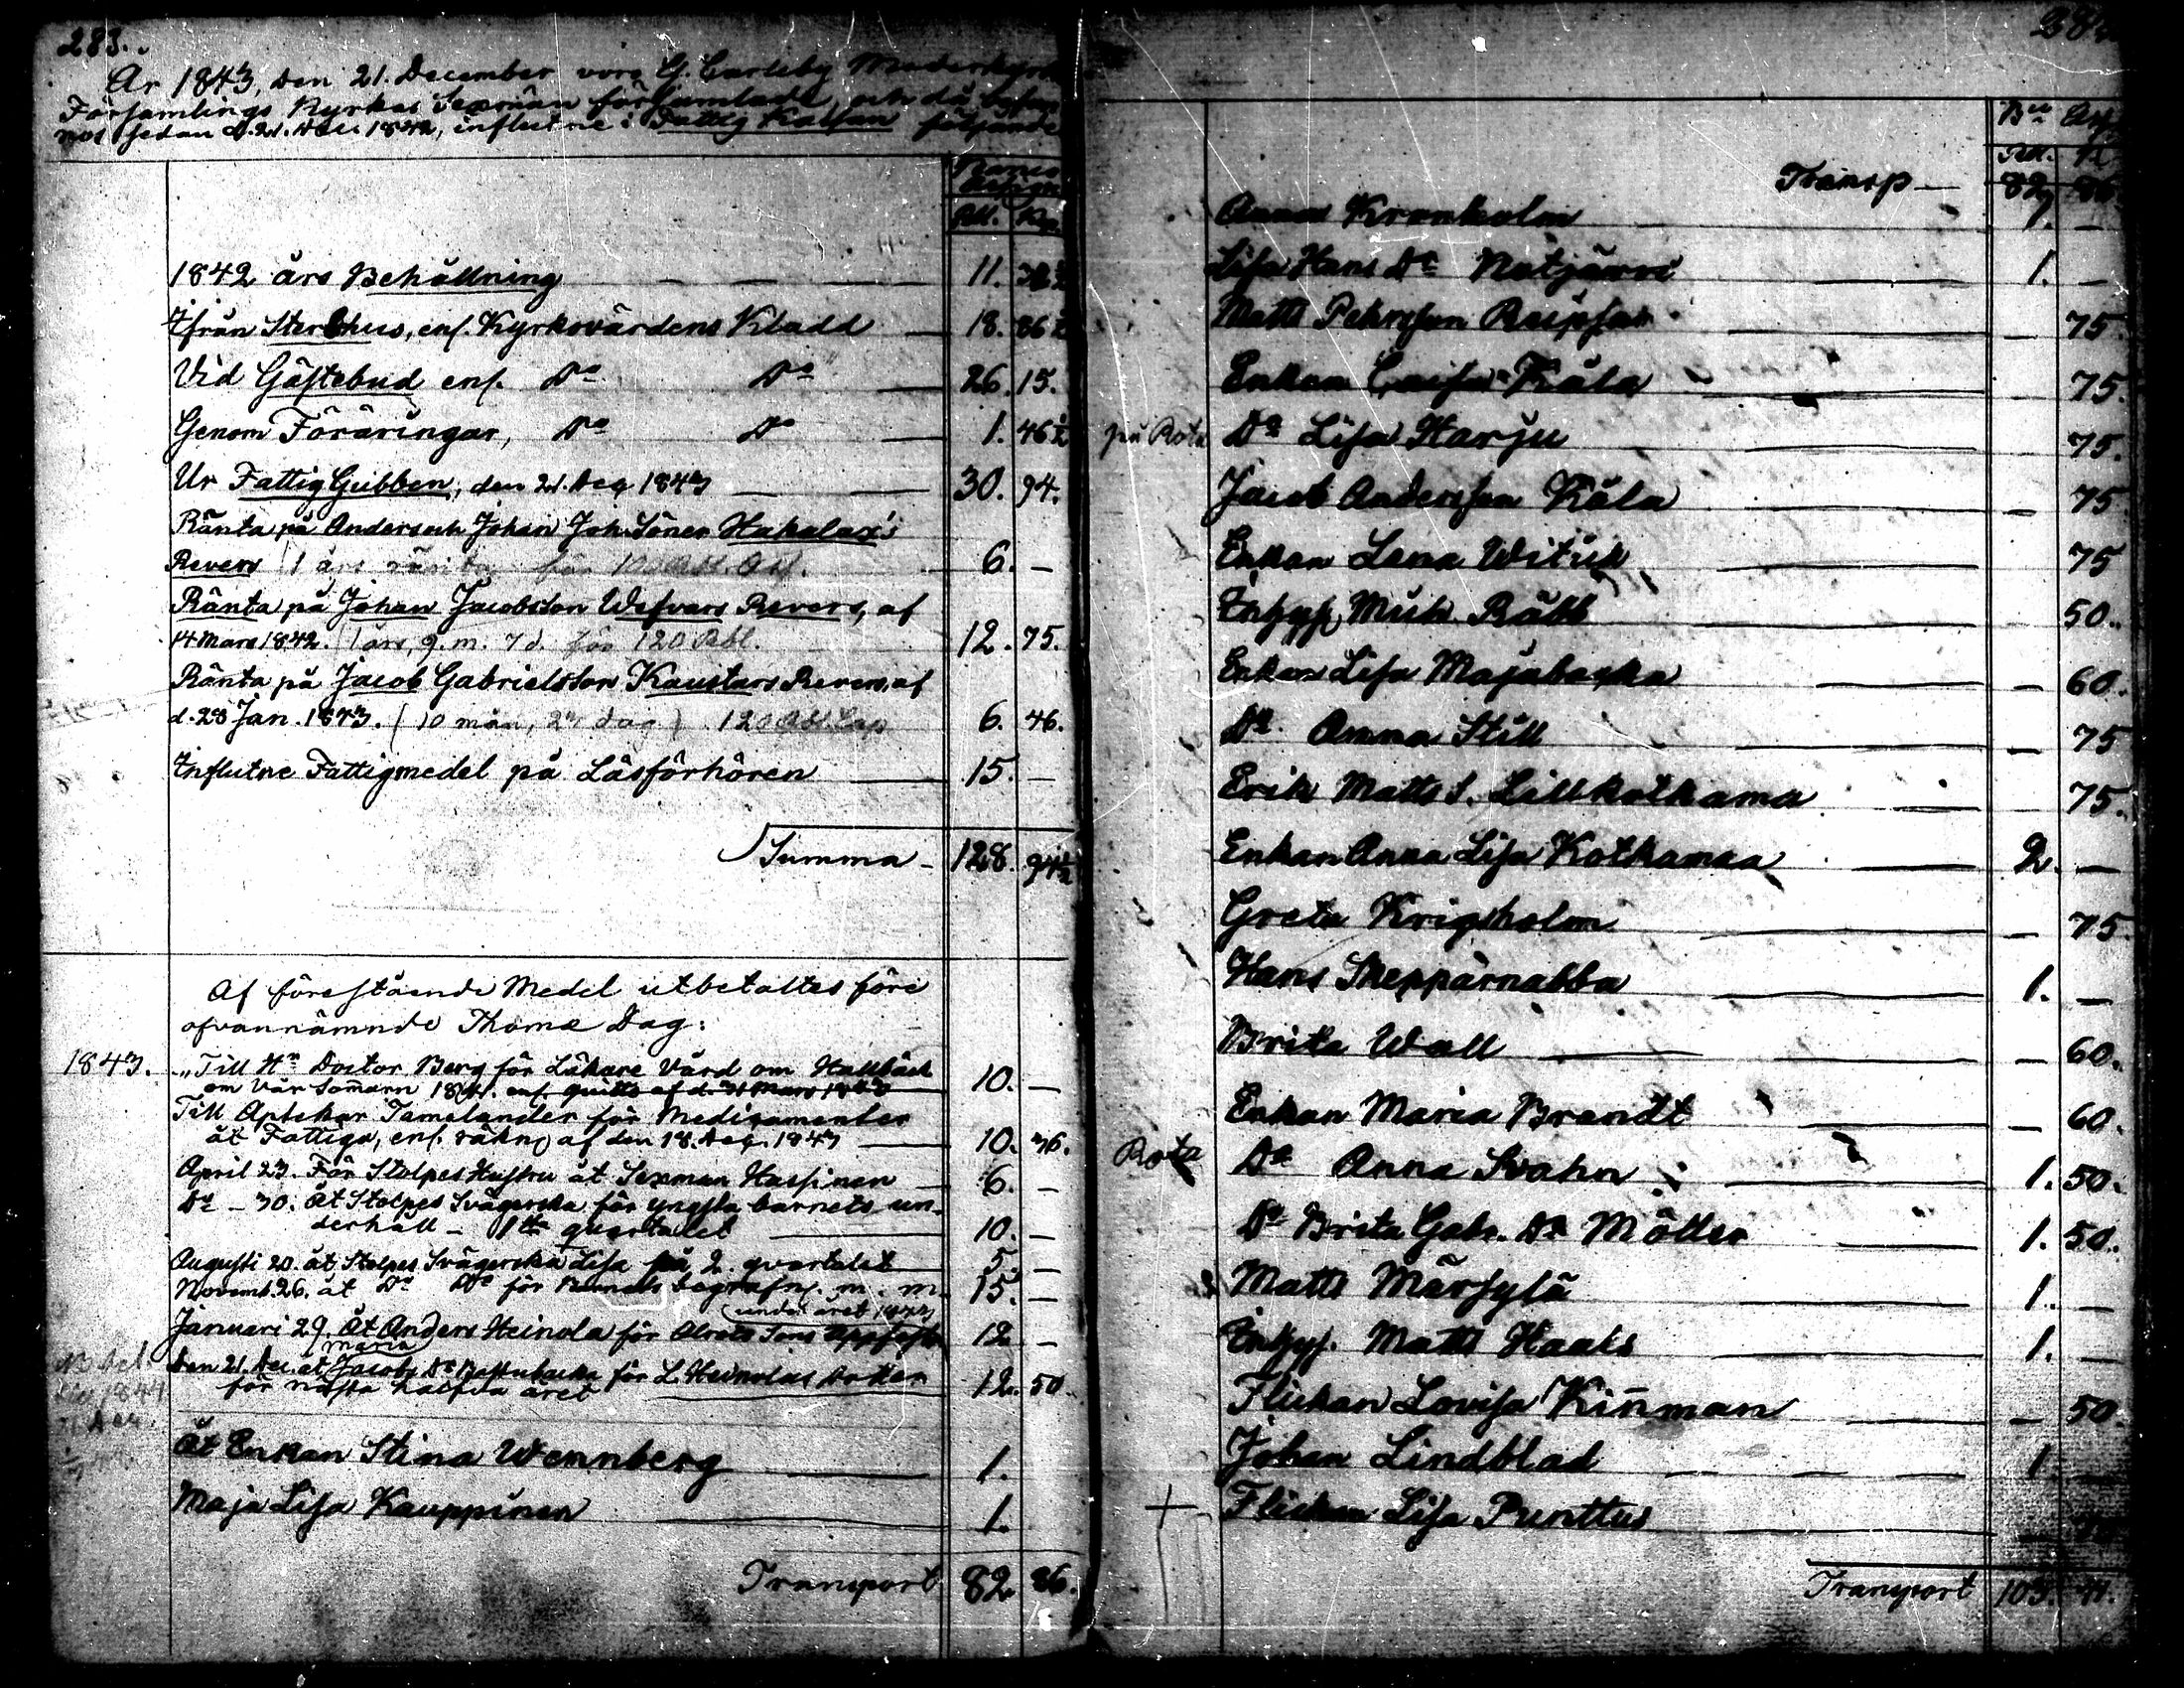 283.
År 1843, den 21. December voro G. Carleby Moderkyrko
Församlings Kyrkos Sexmän församlade, och då befan
nos sedan d. 21. Dec. 1842, influtne i Fattig Kassan följande
Banco Assign.
Rbl. Kop.
1842 års Behållning 11.
Ifrån Sterbhus, enl. Kyrkovärdens Kladd 18. 86 ½
Vid Gästebud enl. Do Do 26. 15.
Genom Föräringar, Do Do 1. 46 ½
Ur Fattig Gubben, den 21. Dec 1843 30. 94.
Ränta på Anders och Johan Joh. Söner Hakalax's
Revers 1 års ränta för 6. —
Ränta på Johan Jacobsson Wesvars Revers, af
14 Mars 1842. 1 års, 9. m. 7 d. för 120 Rbl. 12. 75.
Ränta på Jacob Gabrielsson Kaustars Revers, af
d. 28 Jan. 1843. (10 mån, 23 dag.) 120 Rbl. Cap 6. 46.
Influtne Fattigmedel på Läsförhören 15. —
Summa — 128. 94 ½
Af förestående Medel utbetaltes före
ofvannämnde Thomæ Dag:
1843. „Till Hr Doctor Berg för Läkare Vård om Hallbäck
om Vår Som̄arn 1841. enl. quitto af d. 31 Mars 1843 10. —
Till Aptekar Tamelander för Medicamenter
åt Fattiga, enl. räkn. af den 18. Dec. 1843 10. 36.
April 23. För Stolpes Hustru åt Sexman Hassinen 6. —
Do — 30. åt Stolpes Svägerska för yngsta barnets un-
derhåll — 1sta quartalet 10. —
Augusti 20. åt Stolpes Svägerska Lisa på 2. qvartalet 5. —
Novemb. 26. åt Do Do för Barnets begrafn. m. m. 15. —
under året 1843
Januari 29. Åt Anders Heinola för Sons 12 —
Maria
Den 21. Dec. åt Jacobs Dr för L. Heinolas dotter
för nästa halfva året 12. 50.
Åt Enkan Stina Wennberg 1.
Maja Lisa Kauppinen 1.
Transport 82. 86.
Rbl. K
Transp — 82. 86.
Anna Kronholm 1. —
Lisa Hans Dr Natjärvi 1. —
Matts Pehrsson 75.
Enkan Caisa Kåla 75.
på Rota Do Lisa Harju 75.
Jacob Andersson Kåla — 75.
Enkan Lena Witick 75
Inhys. Mich. Rätt 50.
Enkan Lisa Majabacka — 60.
Do. Anna Still — 75
Erik Matts S. Lillkotkama 75.
Enkan Anna Lisa Kotkamaa 2. —
Greta Krigsholm — 75
Hans Skepparnabba 1. —
Brita Wall — 60.
Enkan Maria Brandt — 60.
Rota Do Anna Svahn 1. 50.
Do Brita Gabr. Dr Möller 1. 50.
Matts Märsylä 1. —
Inhys. Matts Haaks 1. —
Flickan Lovisa Kin̄man — 50.
Johan Lindblad 1 —
+ Flickan Lisa Punttus
Transport 103.